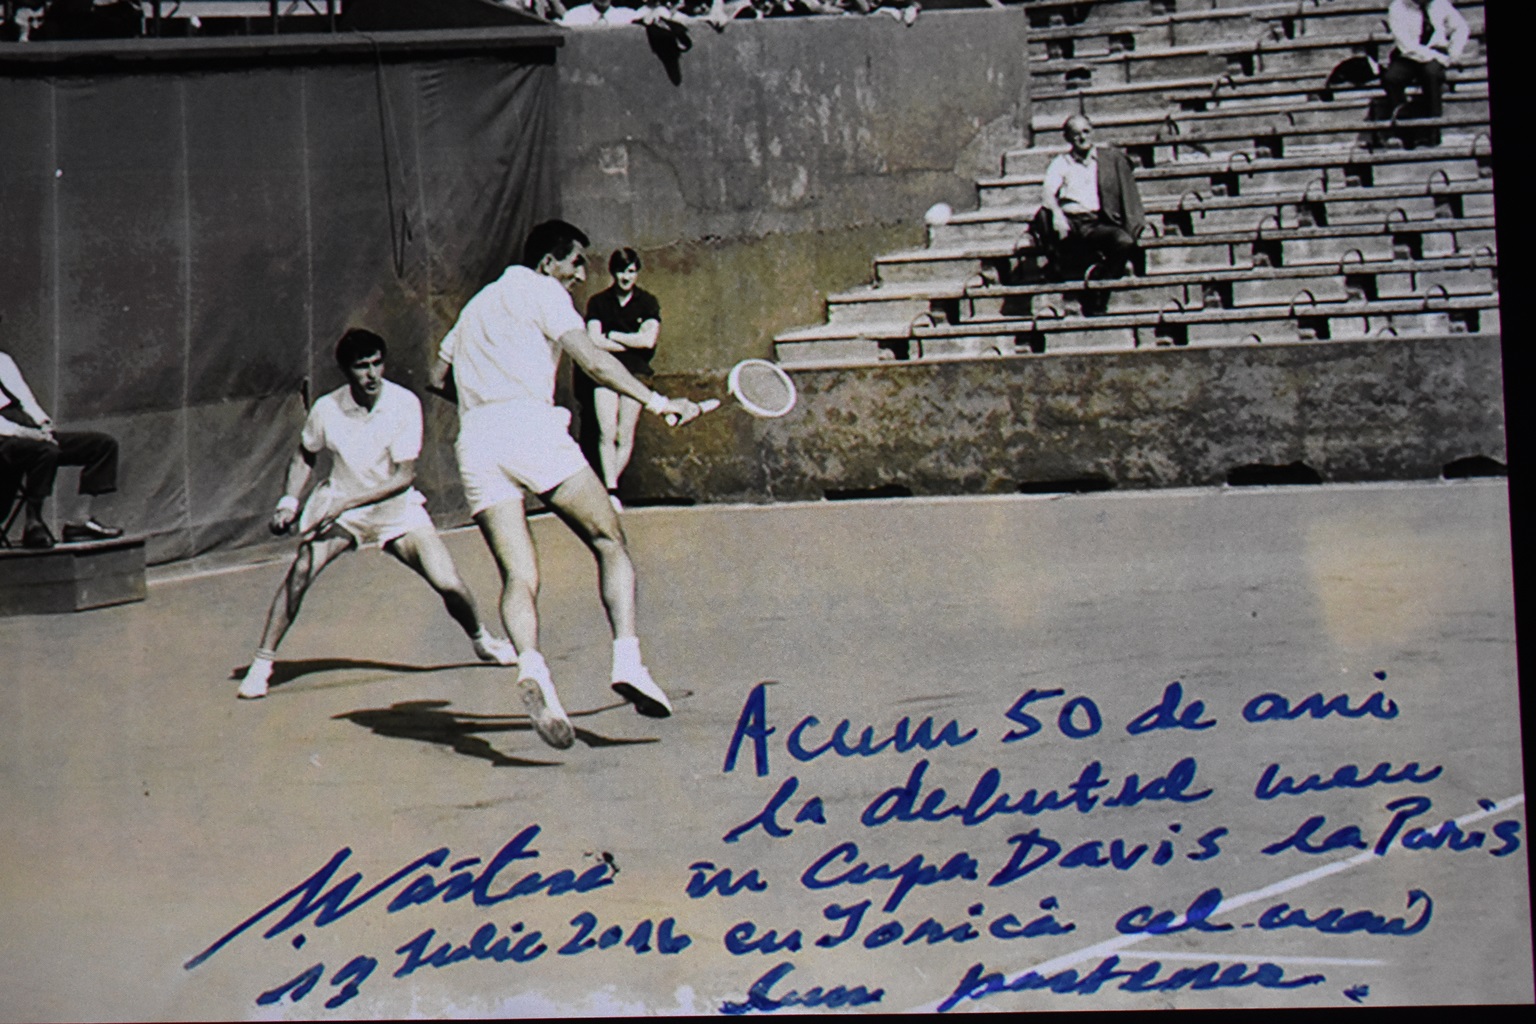 Acum 50 de ani
la debutul meu
în Cupa Davis la Paris
cu Ionică cel mai
bun partener.
Năstase
19 Iulie 2016